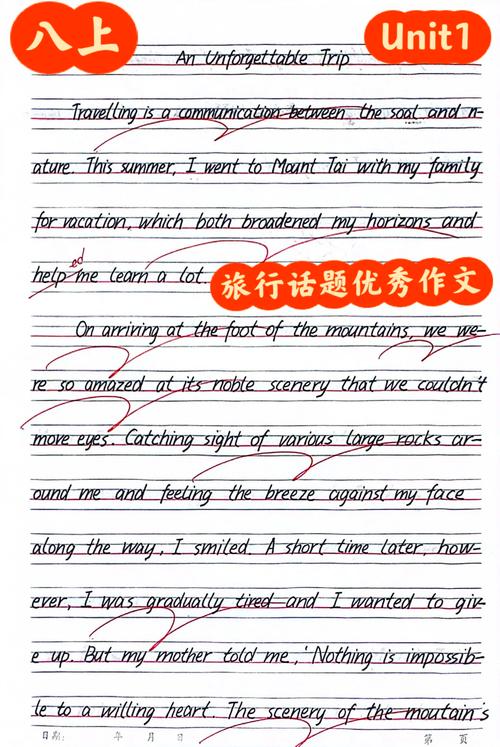 八上
Unit1
An Unforgettable Trip
Travelling is a communication between the soal and n-
ature. This summer, I went to Mount Tai with my family
for vacation, which both broadened my horizons and
ed
help me learn a lot.
旅行话题优秀作文
On arriving at the foot of the mountains, we we-
re so amazed at its noble scenery that we couldn't
move eyes. Catching sight of various large rocks ar-
ound me and feeling the breeze against my face
along the way, I smiled. A short time later, how-
ever, I was gradually tired and I wanted to giv-
e up. But my mother told me, 'Nothing is impossib-
le to a willing heart. The scenery of the moutain's
日期: 年 月 日 第 页